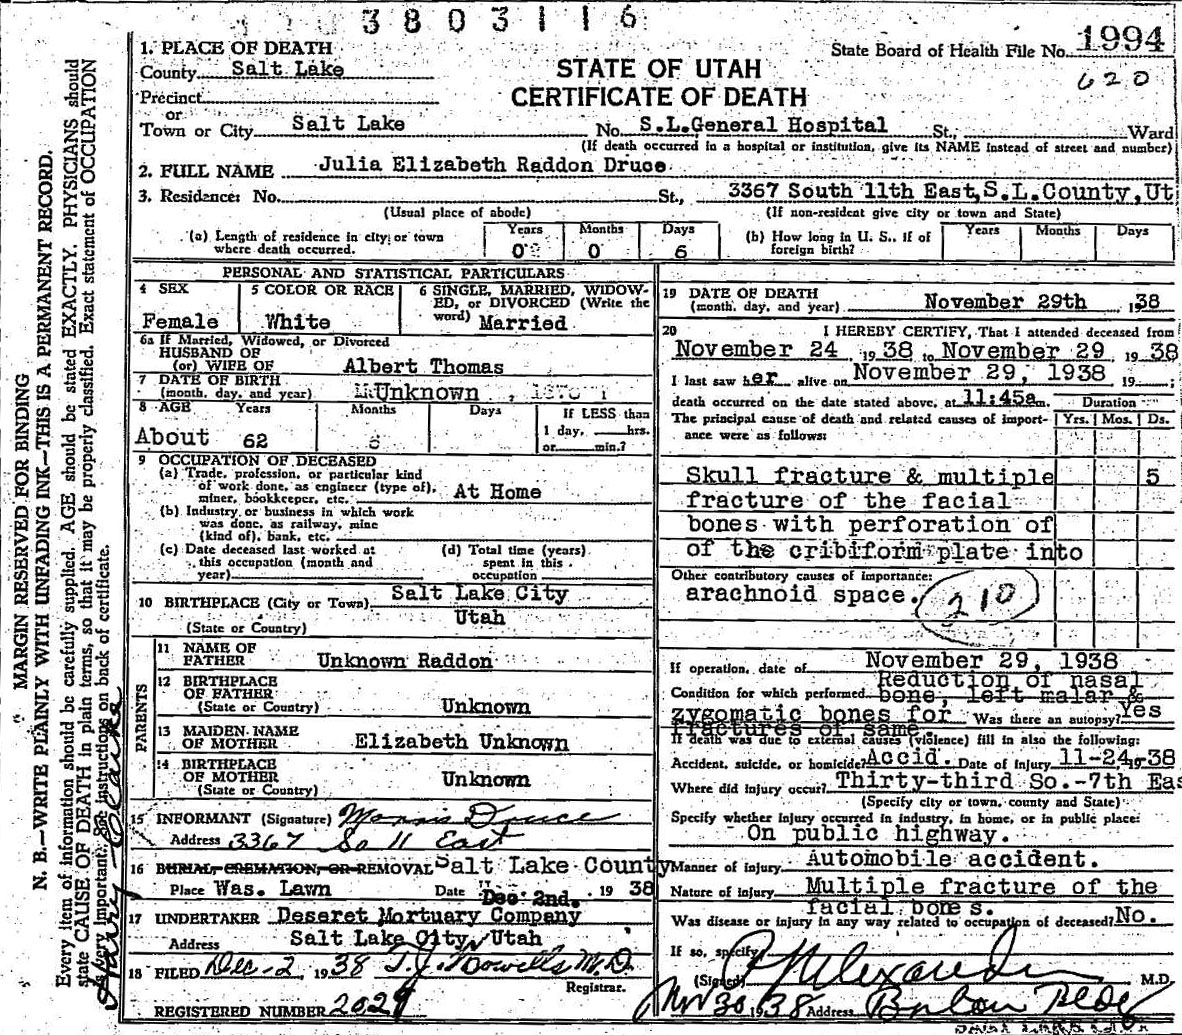 3803116
1. PLACE OF DEATH
State Board of Health File No. 1994
County Salt Lake
STATE OF UTAH
620
Precinct
CERTIFICATE OF DEATH
or
Town or City Salt Lake No. S.L.General Hospital St., Ward
(If death occurred in a hospital or institution, give its NAME instead of street and number)
2. FULL NAME Julia Elizabeth Raddon Druce
3. Residence: No. St., 3367 South 11th East,S.L.County,Ut
(Usual place of abode) (If non-resident give city or town and State)
(a) Length of residence in city or town where death occurred. Years 0 Months 0 Days 6
(b) How long in U. S., if of foreign birth? Years Months Days
PERSONAL AND STATISTICAL PARTICULARS
4 SEX Female
5 COLOR OR RACE White
6 SINGLE, MARRIED, WIDOW-
ED, or DIVORCED (Write the
word) Married
6a If Married, Widowed, or Divorced
HUSBAND OF
(or) WIFE OF Albert Thomas
7 DATE OF BIRTH
(month, day, and year) Unknown
8 AGE Years Months Days If LESS than
1 day, hrs.
About 62 or min.?
9 OCCUPATION OF DECEASED
(a) Trade, profession, or particular kind
of work done, as engineer (type of),
miner, bookkeeper, etc. At Home
(b) Industry or business in which work
was done, as railway, mine
(kind of), bank, etc.
(c) Date deceased last worked at
this occupation (month and
year)
(d) Total time (years)
spent in this
occupation
10 BIRTHPLACE (City or Town) Salt Lake City
Utah
(State or Country)
PARENTS
11 NAME OF
FATHER Unknown Raddon
12 BIRTHPLACE
OF FATHER
(State or Country) Unknown
13 MAIDEN NAME
OF MOTHER Elizabeth Unknown
14 BIRTHPLACE
OF MOTHER
(State or Country) Unknown
15 INFORMANT (Signature) Morris Druce
Address 3367 So 11 East
16 BURIAL, CREMATION, OR REMOVAL Salt Lake County
Place Was. Lawn Date Dec 2nd. 1938
17 UNDERTAKER Deseret Mortuary Company
Address Salt Lake City, Utah
18 FILED Dec-2, 1938 T.J. Howells M.D.
Registrar.
REGISTERED NUMBER 2029
19 DATE OF DEATH
(month, day, and year) November 29th , 38
20 I HEREBY CERTIFY, That I attended deceased from
November 24 , 1938 to November 29 , 1938
I last saw her alive on November 29, 1938 , 19 ;
death occurred on the date stated above, at 11:45a m. Duration
The principal cause of death and related causes of import-
ance were as follows: Yrs. Mos. Ds.
Skull fracture & multiple 5
fracture of the facial
bones with perforation of
of the cribiform plate into
Other contributory causes of importance:
arachnoid space. 210
If operation, date of November 29, 1938
Reduction of nasal
Condition for which performed bone, left malar &
zygomatic bones for Was there an autopsy? Yes
fractures of same.
If death was due to external causes (violence) fill in also the following:
Accident, suicide, or homicide? Accid. Date of injury 11-24, 1938
Where did injury occur? Thirty-third So.-7th Eas
(Specify city or town, county and State)
Specify whether injury occurred in industry, in home, or in public place:
On public highway.
Manner of injury Automobile accident.
Nature of injury Multiple fracture of the
facial bones.
Was disease or injury in any way related to occupation of deceased? No.
If so, specify
(Signed) Alexander M.D.
Nov 30 1938 Address
MARGIN RESERVED FOR BINDING
N. B.—WRITE PLAINLY WITH UNFADING INK—THIS IS A PERMANENT RECORD.
Every item of information should be carefully supplied. AGE should be stated EXACTLY. PHYSICIANS should
state CAUSE OF DEATH in plain terms, so that it may be properly classified. Exact statement of OCCUPATION
is very important. See instructions on back of certificate.